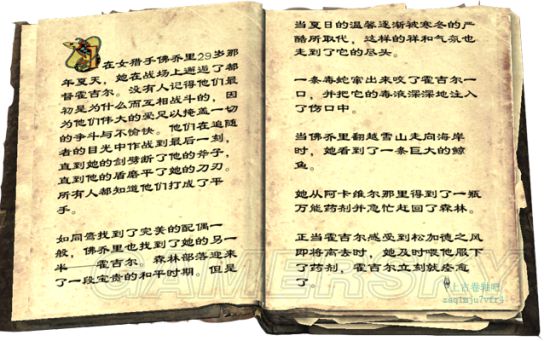 在女猎手佛乔里29岁那
年夏天,她在战场上邂逅了都
督霍吉尔。没有人记得他们最
初是为什么而互相战斗的,因
为他们伟大的爱足以掩盖一切
的争斗与不愉快。他们在追随
者的目光中作战到最后一刻,
直到她的剑劈断了他的斧子,
直到他的盾磨平了她的刀刃。
所有人都知道他们打成了平
手。
如同鹰找到了完美的配偶一
般,佛乔里也找到了她的另一
半——霍吉尔。森林部落迎来
了一段宝贵的和平时期。但是
当夏日的温馨逐渐被寒冬的严
酷所取代,这样的祥和气氛也
走到了它的尽头。
一条毒蛇窜出来咬了霍吉尔一
口,并把它的毒液深深地注入
了伤口中。
当佛乔里翻越雪山走向海岸
时,她看到了一条巨大的鲸
鱼。
她从阿卡维尔那里得到了一瓶
万能药剂并急忙赶回了森林。
正当霍吉尔感受到松加德之风
即将离去时,她及时喂他服下
了药剂,霍吉尔立刻就痊愈
了。
GAMERSKY
上古卷轴吧